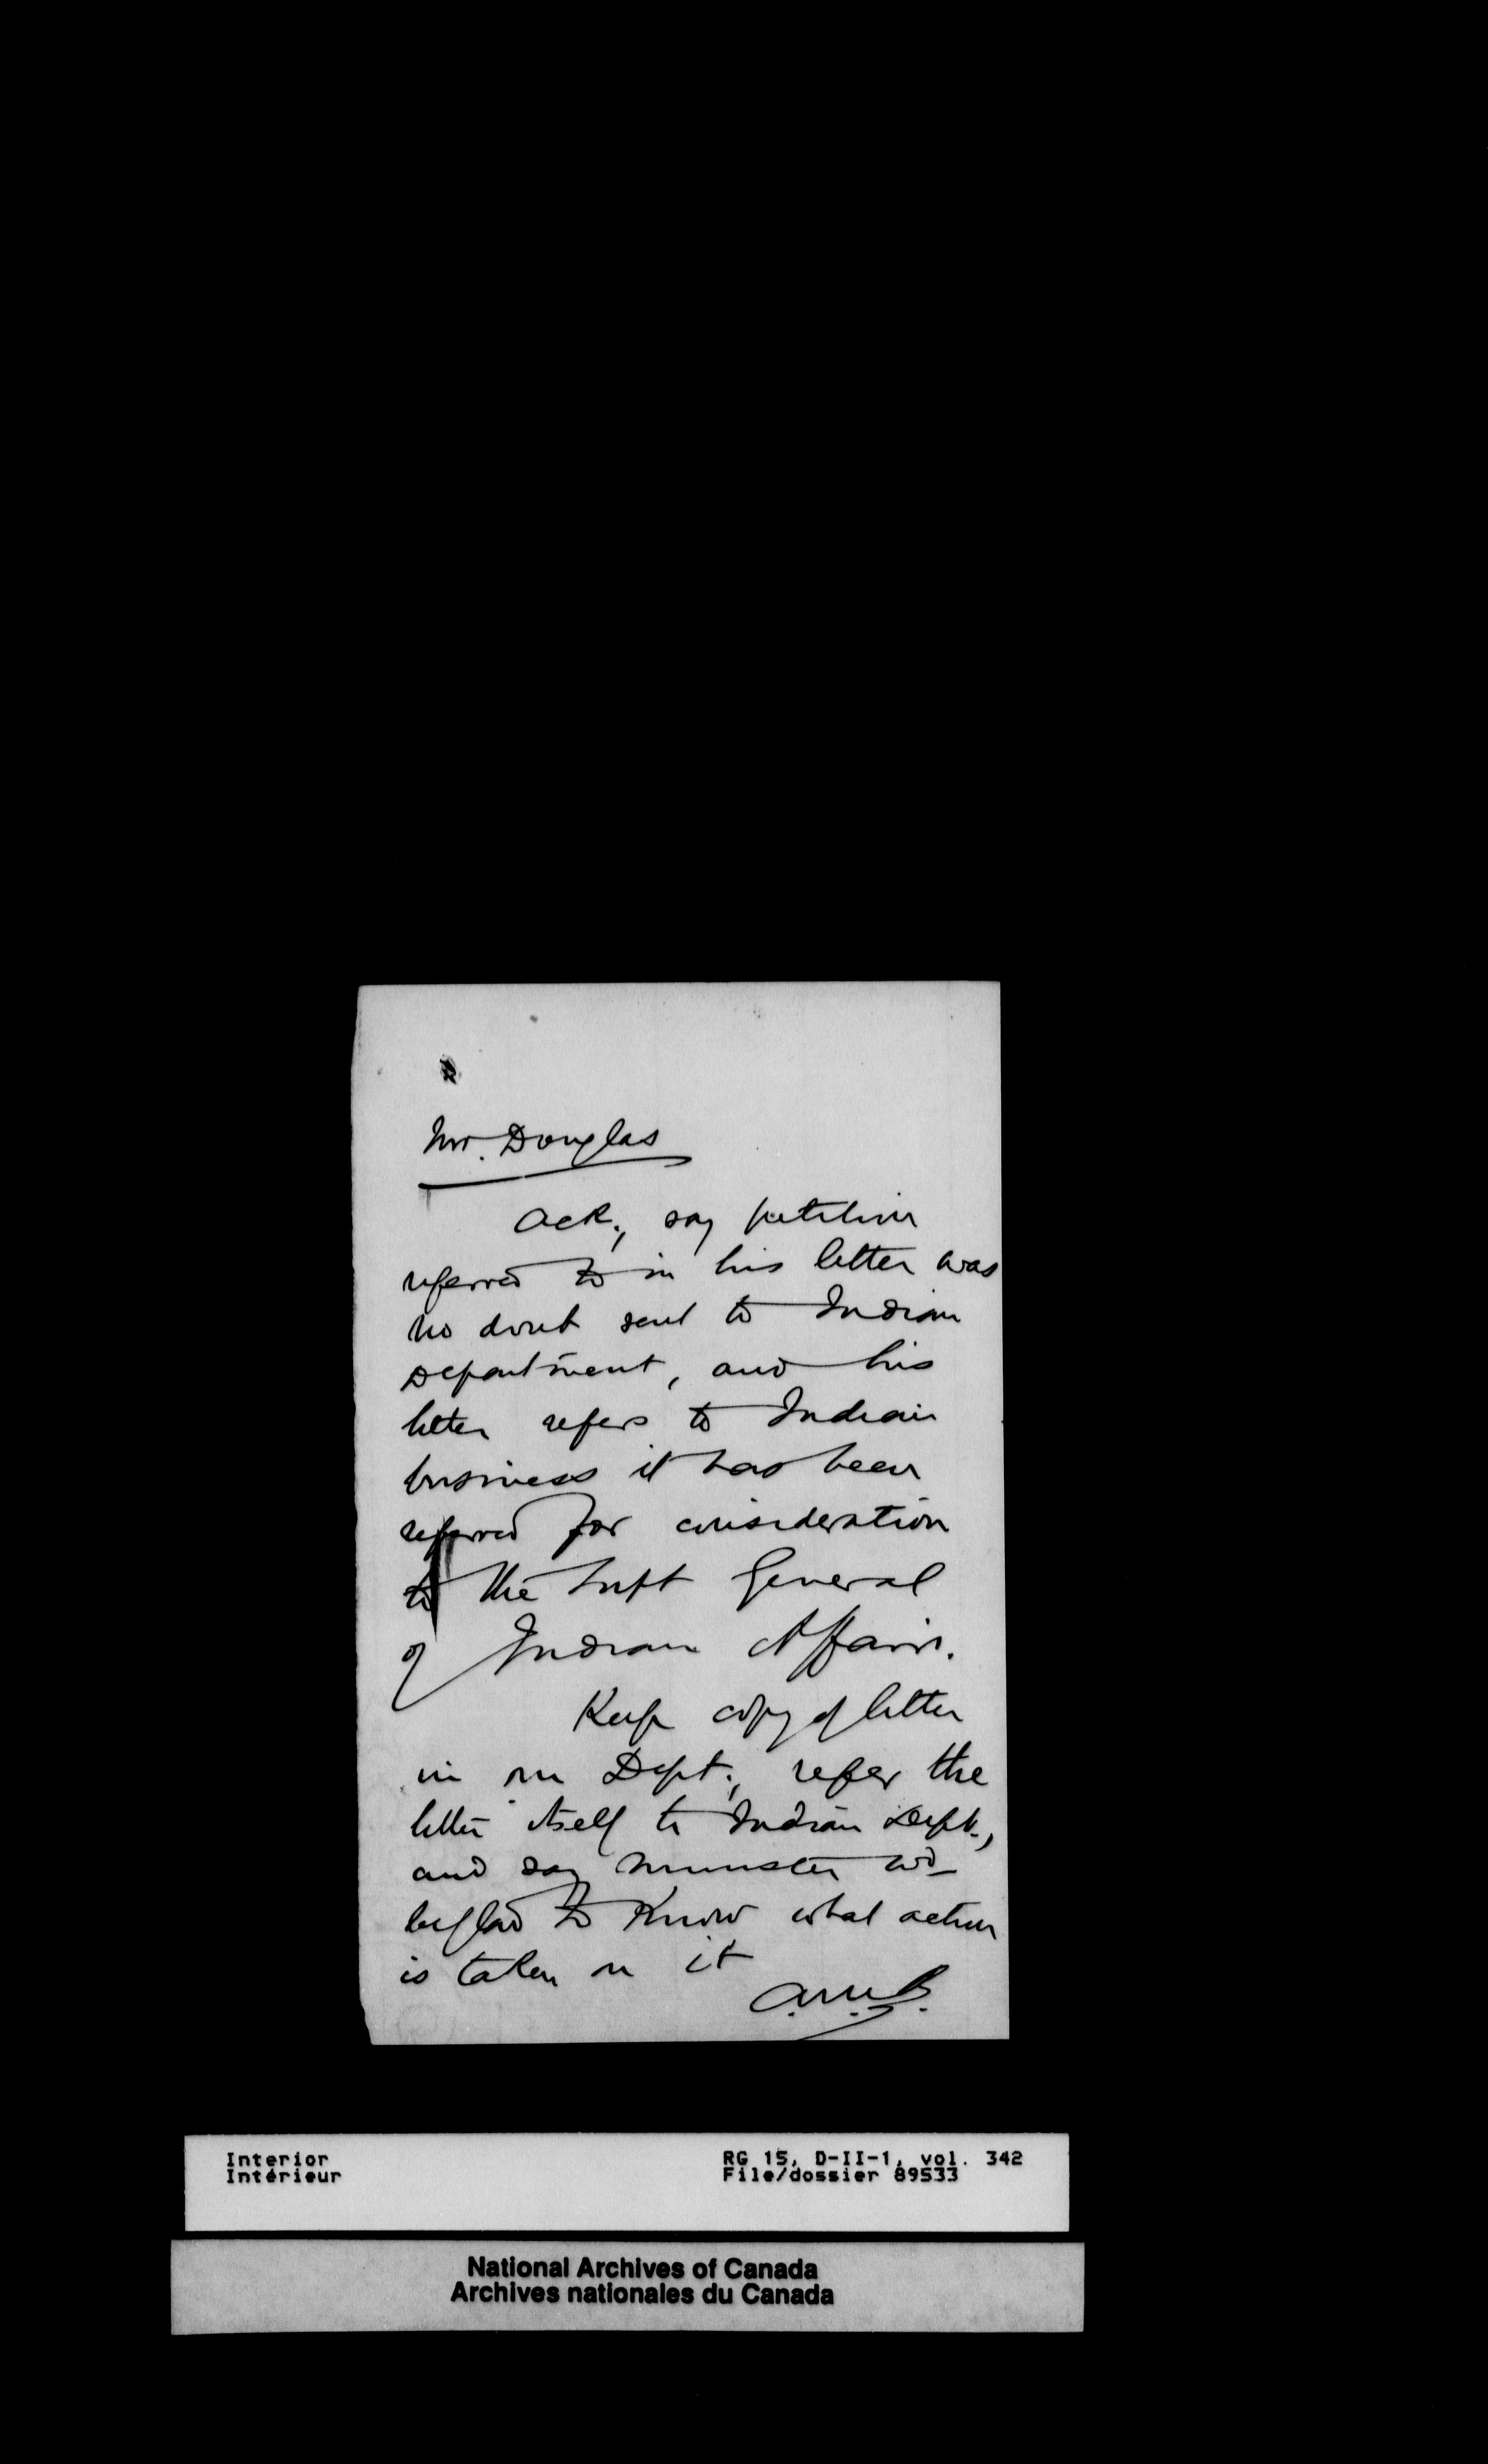 Mr. Douglas
Ack., say petition
referred to in his letter was
no doubt sent to Indian
Department, and his
letter refers to Indian
business it has been
referred for consideration
to the Supt General
of Indian Affairs.
Keep copy of letter
in our Dept., refer the
letter itself to Indian Dept.,
and say Minister wd
be glad to know what action
is taken on it
A.M.B.
Interior
Intérieur
RG 15, D-II-1, vol. 342
File/dossier 89533
National Archives of Canada
Archives nationales du Canada